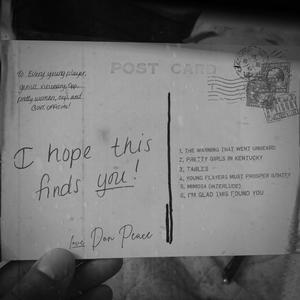 POST CARD
To: Every young player,
pretty woman, cup, and
Govt. official!
I hope this
finds you!
Love, Don Peace
1. THE WARNING THAT WENT UNHEARD
2. PRETTY GIRLS IN KENTUCKY
3. TABLES
4. YOUNG PLAYERS MUST PROSPER
5. MIMOSA (INTERLUDE)
6. I'M GLAD THIS FOUND YOU